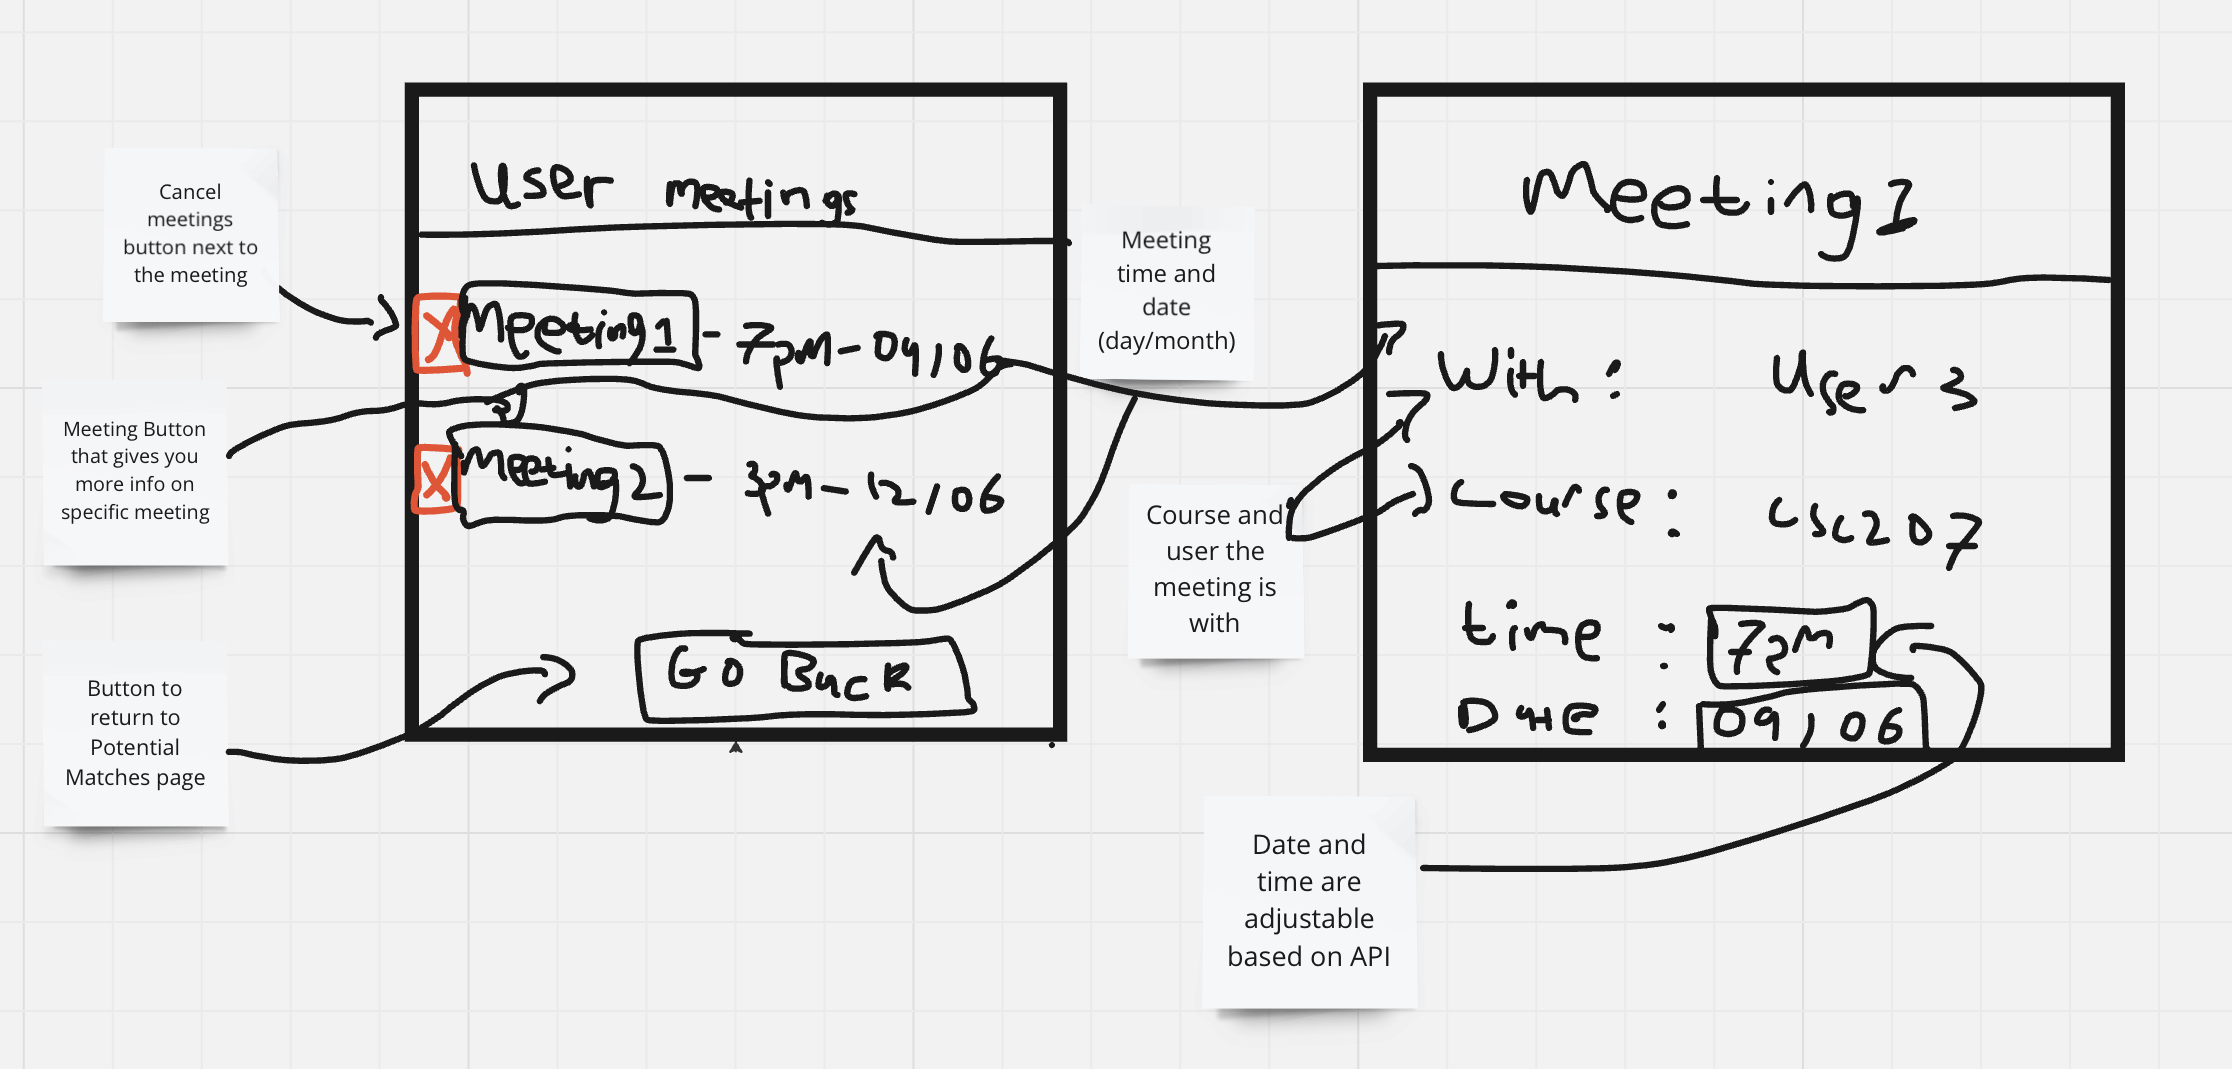 Cancel
meetings
button next to
the meeting
Meeting Button
that gives you
more info on
specific meeting
Button to
return to
Potential
Matches page
User meetings
X Meeting 1 - 7pm - 09/06
X Meeting 2 - 3pm - 12/06
Go Back
Meeting
time and
date
(day/month)
Course and
user the
meeting is
with
Meeting 1
With: User 3
Course: csc207
time: 7pm
Date: 09/06
Date and
time are
adjustable
based on API